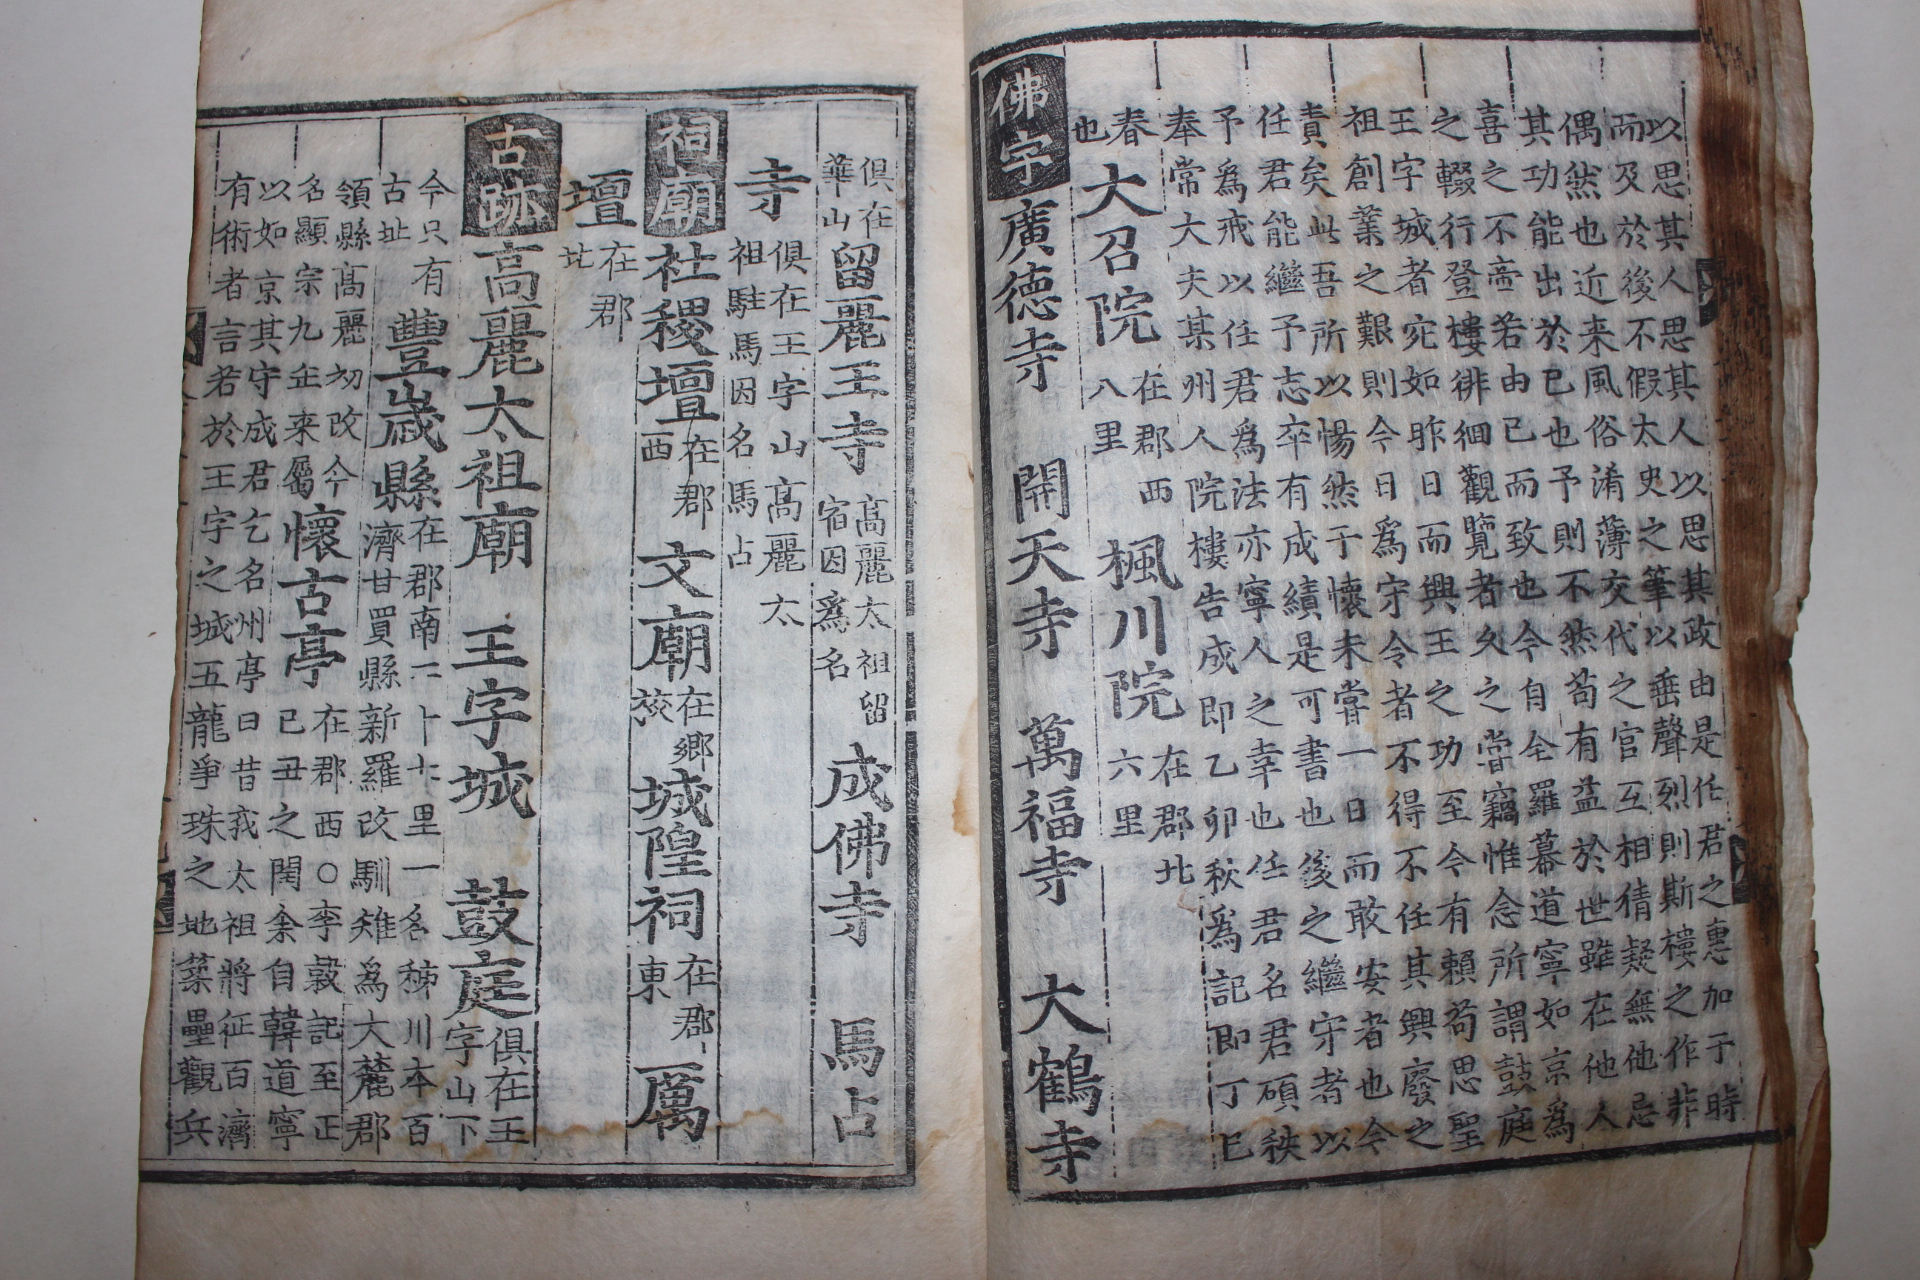 以思其人思其人以思其政由是任君之惠加于時
而及於後不假太史之筆以垂聲烈則斯樓之作非
偶然也近来風俗淆薄交代之官互相猜疑無他忌
其功能出於已也予則不然苟有益於世雖在他人
喜之不啻若由已而致也今自仝羅幕道寧如京爲
之輟行登樓徘徊觀覽者久之嘗竊惟念所謂鼓庭
王字城者宛如昨日而興王之功至今有賴苟思聖
祖創業之艱則今日爲守令者不得不任其興廢之
責矣此吾所以惕然于懷未嘗一日而敢安者也今
任君能繼予志卒有成績是可書也後之繼守者以
予爲戒以任君爲法亦寧人之幸也任君名君碩秩
奉常大夫某州人院樓告成即乙卯秋爲記即丁巳
春也 大召院 在郡西八里 楓川院 在郡北六里
佛宇 廣德寺 開天寺 萬福寺 大鶴寺
俱在華山 留麗王寺 高麗太祖留宿因爲名 成佛寺 馬占
寺 俱在王字山高麗太祖駐馬因名馬占
祠廟 社稷壇 在郡西 文廟 在鄉校 城隍祠 在郡東 厲
壇 在郡北
古跡 高麗太祖廟 王字城 鼓庭 俱在王字山下
今只有古址 豊歲縣 在郡南二十七里一名秭川本百濟甘買縣新羅改馴雉爲大麓郡
領縣高麗初改今名顯宗九年来屬 懷古亭 在郡西○李穀記至正己丑之閏余自韓道寧
以如京其守成君乞名州亭曰昔我太祖將征百濟
有術者言若於王字之城五龍爭珠之地築壘觀兵